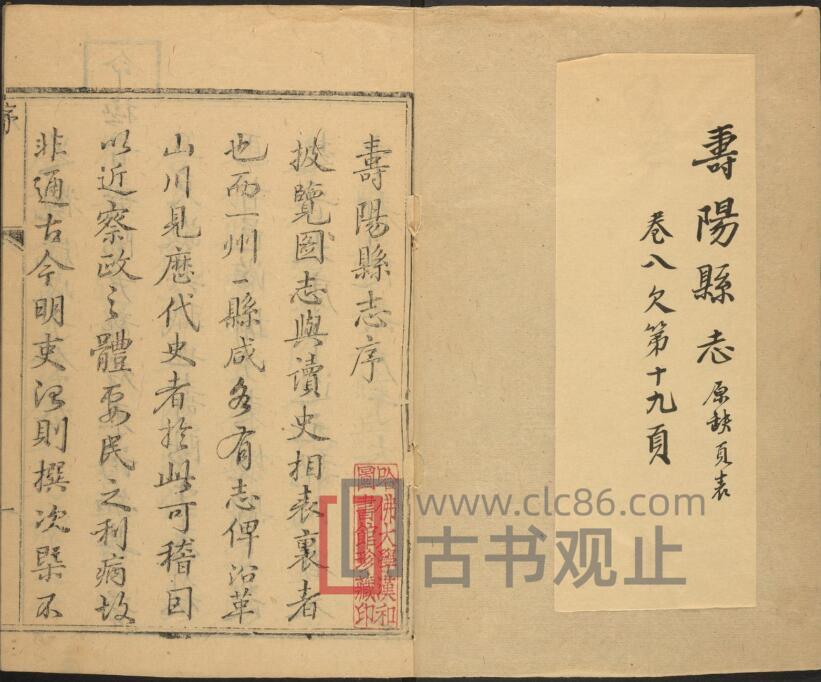 壽陽縣志 原缺頁表
卷八欠第十九頁
壽陽縣志序
披覽圖志與讀史相表裏者
也而一州一縣咸各有志俾沿革
山川見歷代史者於此可稽因
以近察政之體要民之利病故
非通古今明吏治則撰次槩不
序
一
哈佛大學漢和
圖書館珍藏印
www.clc86.com
古书观止